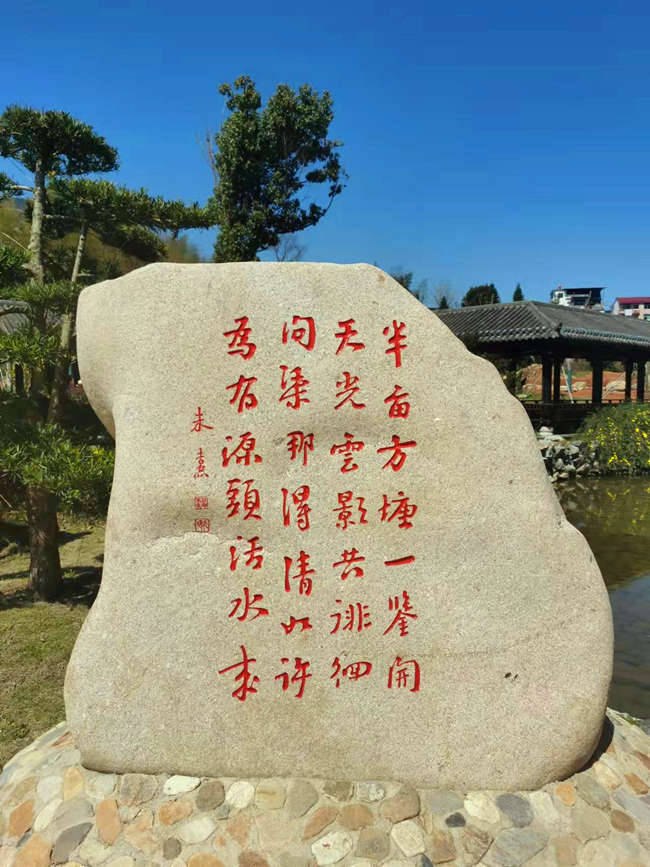 半亩方塘一鉴開
天光雲影共徘徊
问渠那得清如许
為有源頭活水来
朱熹